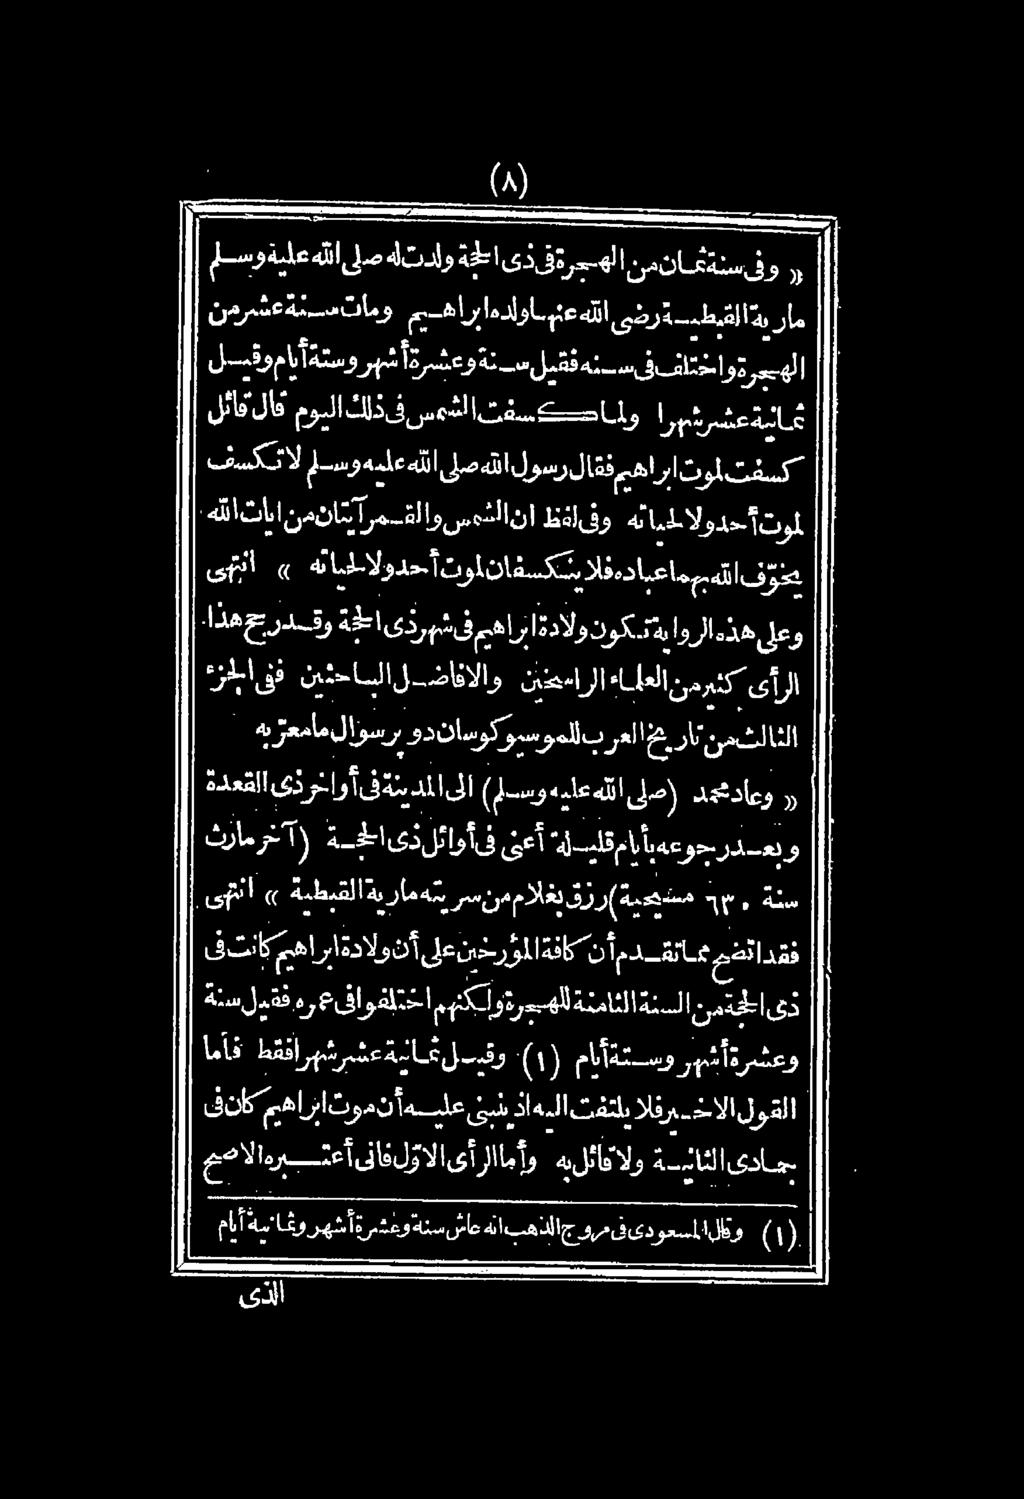 (٨)
« وفى سنة ثمان من الهجرة فى ذى الحجة ولدت له صلى الله عليه وسلم
مارية القبطية رضى الله عنها ولده ابراهيم ومات سنة عشر من
الهجرة واختلف فى سنه فقيل سنة وعشرة أشهر وستة أيام وقيل
ثمانية عشر شهرا ولما كسفت الشمس فى ذلك اليوم قال قائل
كسفت لموت ابراهيم فقال رسول الله صلى الله عليه وسلم لا تكسف
لموت أحد ولا لحياته وفى لفظ ان الشمس والقمر آيتان من ايات الله
يخوّف الله بهما عباده فلا ينكسفان لموت أحد ولا لحياته » انتهى
وعلى هذه الرواية تكون ولادة ابراهيم فى شهر ذى الحجة وقد رجح هذا
الرأى كثير من العلماء الراسخين والافاضل الباحثين ففى الجزء
الثالث من تاريخ العرب للموسيو كوسان دو پرسوال ما معرّبه
« وعاد محمد (صلى الله عليه وسلم) الى المدينة فى أواخر ذى القعدة
وبعد رجوعه بأيام قليلة أعنى فى أوائل ذى الحجة (آخر مارث
سنة ٦٣٠ مسيحية) رزق بغلام من سريته مارية القبطية » انتهى
فقد اتضح مما تقدم أن كافة المؤرخين على أن ولادة ابراهيم كانت فى
ذى الحجة من السنة الثامنة للهجرة ولكنهم اختلفوا فى عمره فقيل سنة
وعشرة أشهر وستة أيام (١) وقيل ثمانية عشر شهرا فقط فأما
القول الاخير فلا يلتفت اليه اذ ينبنى عليه أن موت ابراهيم كان فى
جمادى الثانية ولا قائل به وأما الرأى الاوّل فانى أعتبره الاصح
(١) وقال المسعودى فى مروج الذهب انه عاش سنة وعشرة أشهر وثمانية أيام
الذى